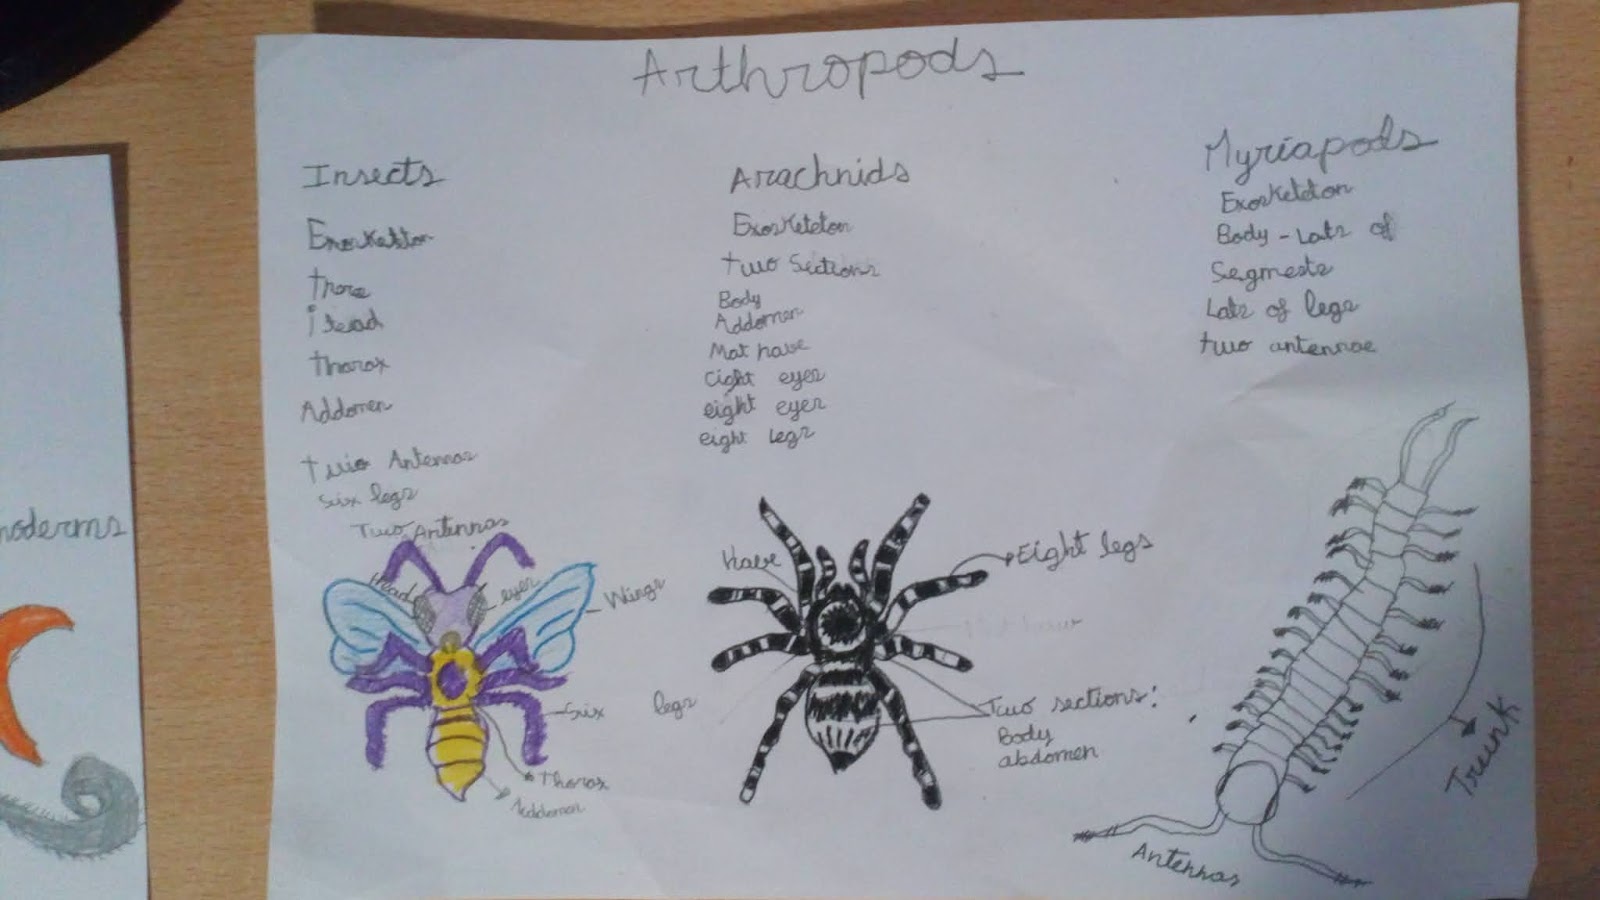 Arthropods
Insects
Exorkeltton
thore
i tead
thorax
Addomen
Twio Antennas
Six legs
Two Antennas
Head
eyes
Wings
Six legs
Thorax
Addomen
Arachnids
Exorkeleton
two Sections
Body
Addomen
Mat have
Cight eyer
eight eyer
eight legs
have
Eight legs
Two sections:
Body
abdomen
Myriapods
Exorkeleton
Body - Lats of
Segmests
Lats of legs
two antennae
Trunk
Antennas
noderms